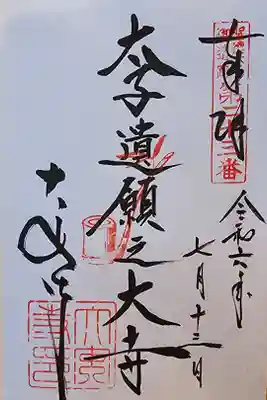 奉拝
令和六年
七月十三日
太子遺願之大寺
大安寺